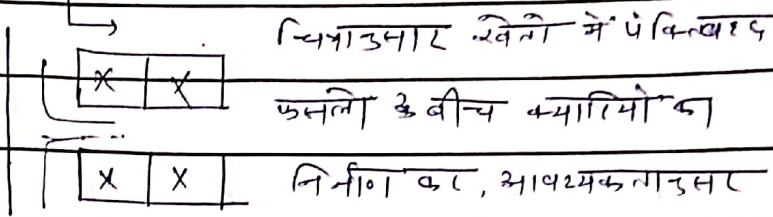 चित्रानुसार खेतो में पंक्तिबद्ध
x x
फसलो के बीच क्यारियों का
x x
निर्माण कर, आवश्यकतानुसार